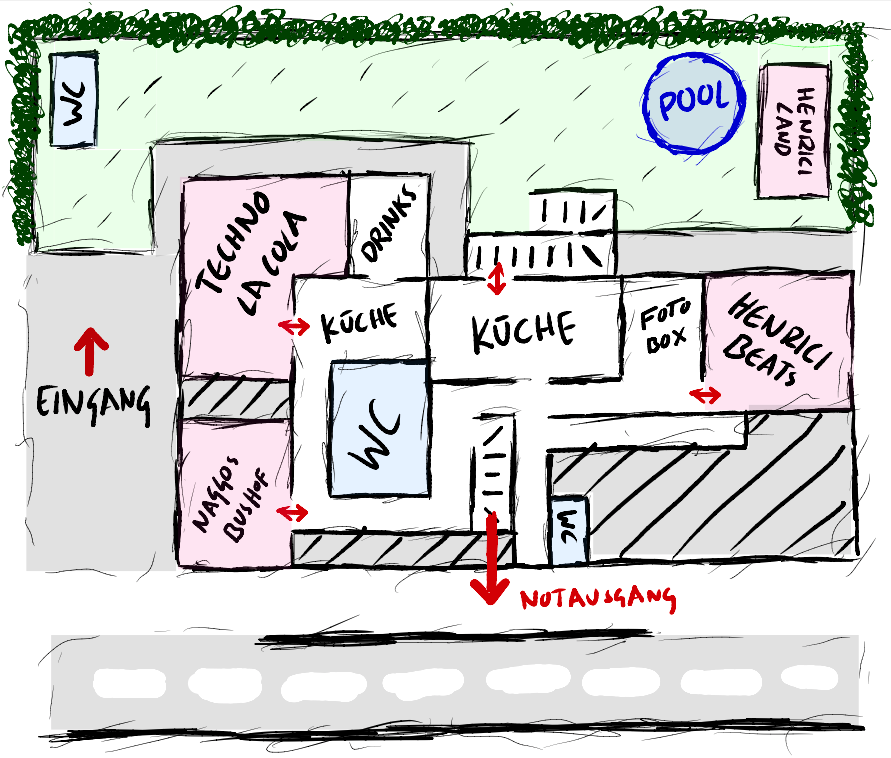 WC
POOL
HENRICI
LAND
TECHNO
LA COLA
DRINKS
KÜCHE
KÜCHE
FOTO
BOX
HENRICI
BEATS
EINGANG
WC
NAGGOS
BUSHOF
WC
NOTAUSGANG